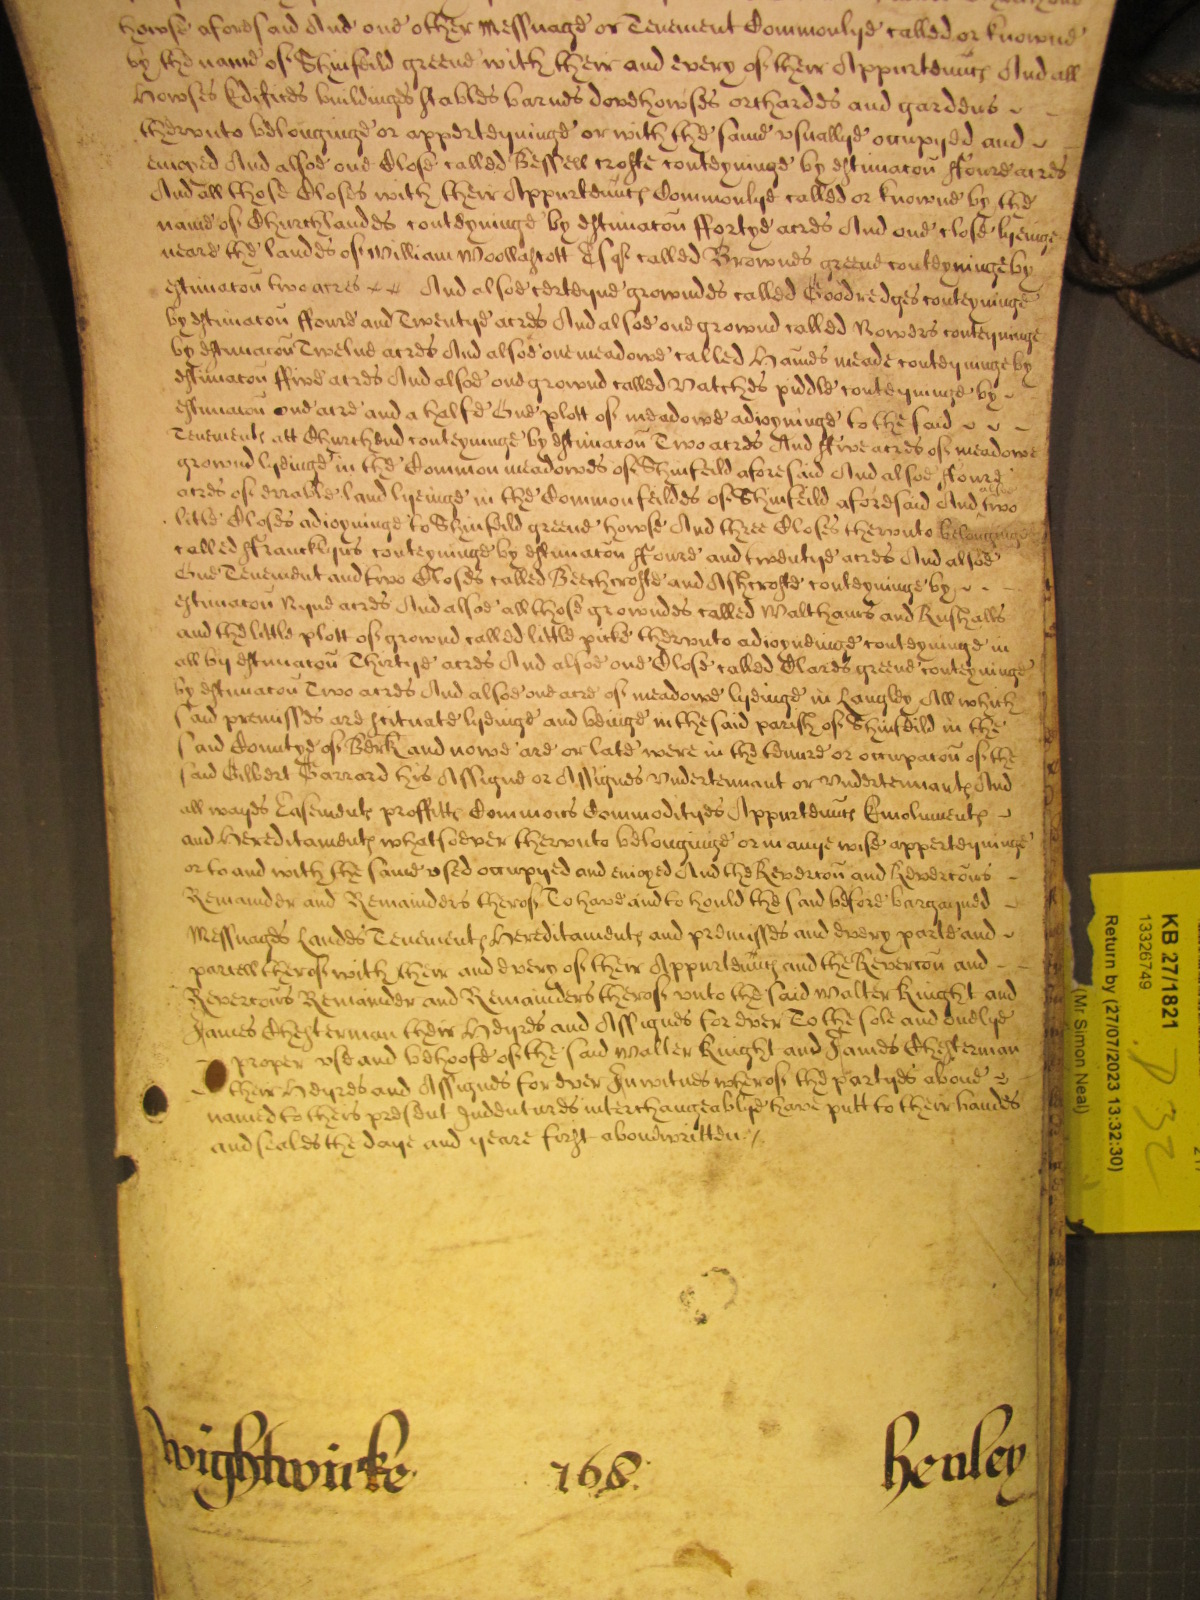 howse aforesaid And one other Messuage or Tenement Commonlye called or knowne
by the name of Shinfeild greene with their and every of their Appurtennc And all
Howses Edifices buildinges stables barnes dovehowses orchardes and gardens
therunto belonginge or apperteyninge or with the same usuallye occupyed and
enioyed And alsoe one Close called Bessell crofte conteyninge by estimacon ffoure acres
And all those Closes with their Appurtennc Commonlye called or knowne by the
name of Churchlandes conteyninge by estimacon ffortye acres And one close lyeinge
neare the landes of William Woollascott Esqr called Brownes greene conteyninge by
estimacon two acres And alsoe certeyne growndes called Goodredges conteyninge
by estimacon ffoure and Twentye acres And alsoe one grownd called Rowers conteyninge
by estimacon Twelve acres And alsoe one meadowe called Hames meade conteyninge by
estimacon ffive acres And alsoe one grownd called Vatches piddle conteyninge by
estimacon one acre and a halfe One plott of meadowe adioyninge to the said
Tenement att Churchend conteyninge by estimacon Two acres And ffive acres of meadowe
grownd lyeinge in the Common meadowes of Shinfeild aforesaid And alsoe ffoure
acres of errable land lyeinge in the Common feildes of Shinfeild aforesaid And alsoe two
little Closes adioyninge to Shinfeild greene howse And three Closes therunto belonginge
called ffrancklyns conteyninge by estimacon ffoure and twentye acres And alsoe
One Tenement and two Closes called Beechcrofte and Ashcrofte conteyninge by
estimacon Nyne acres And alsoe all those growndes called Walthams and Rushalls
and the little plott of grownd called little picke therunto adioyneinge conteyninge in
all by estimacon Thirtye acres And alsoe one Close called Clares greene conteyninge
by estimacon Two acres And alsoe one acre of meadowe lyeinge in Langley All which
said premisses are scituate lyeinge and beinge in the said parish of Shinfeild in the
said Countye of Berk and nowe are or late were in the tenure or occupacon of the
said Gilbert Garrard his Assigne or Assignes Undertennant or Undertennantes And
all wayes Easementes proffittes Commons Commodityes Appurtennc Emolumentes
and Hereditamentes whatsoever therunto belonginge or in anye wise apperteyninge
or to and with the same used occupyed and enioyed And the Revercon and Revercons
Remainder and Remainders therof To have and to hould the said before bargayned
Messuages Landes Tenementes Hereditamentes and premisses and every parte and
parcell therof with their and every of their Appurtennc and the Revercon and
Revercons Remainder and Remainders therof unto the said Walter Knight and
James Chesterman their Heyres and Assignes for ever To the sole and onelye
proper use and behoofe of the said Walter Knight and James Chesterman
their Heyres and Assignes for ever In witnes wherof the partyes above
named to theis present Indentures interchangeablye have putt to their handes
and seales the daye and yeare first above written
wightwicke 168 henley
KB 27/1821
13326749
Return by (27/07/2023 13:32:30)
(Mr Simon Neal)